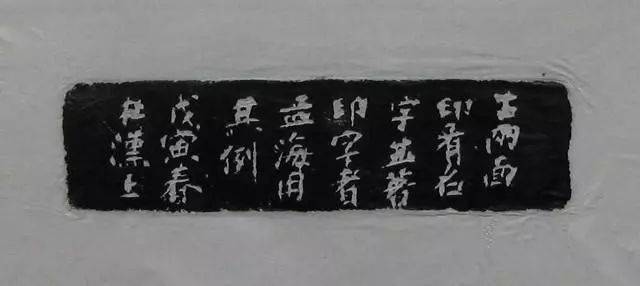 古兩面
印有
字並著
印字者
孟海用
其例
戊寅春
在漢上